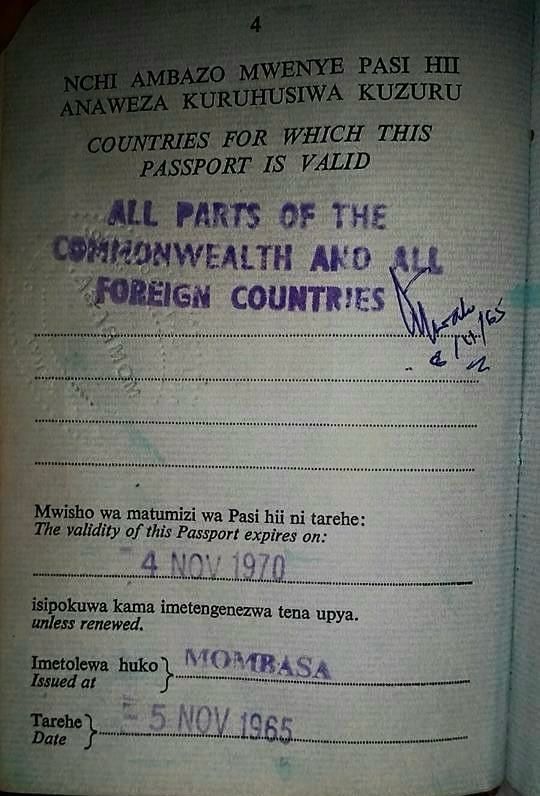 4
NCHI AMBAZO MWENYE PASI HII
ANAWEZA KURUHUSIWA KUZURU
COUNTRIES FOR WHICH THIS
PASSPORT IS VALID
ALL PARTS OF THE
COMMONWEALTH AND ALL
FOREIGN COUNTRIES
Mwisho wa matumizi wa Pasi hii ni tarehe:
The validity of this Passport expires on:
4 NOV 1970
isipokuwa kama imetengenezwa tena upya.
unless renewed.
Imetolewa huko } MOMBASA
Issued at
Tarehe } - 5 NOV 1965
Date